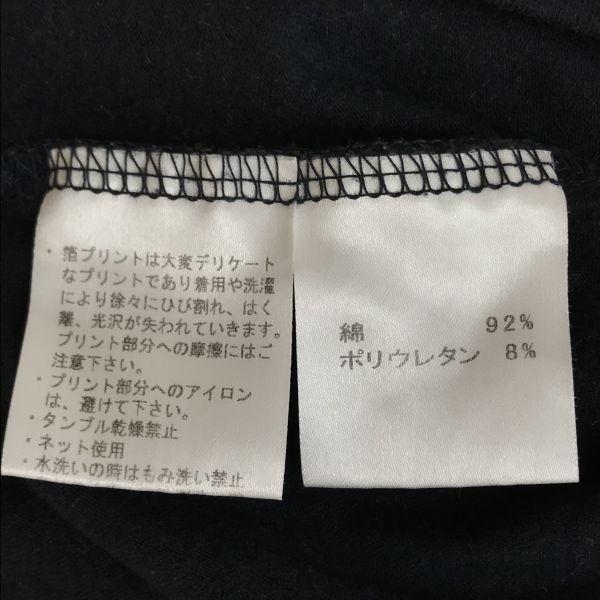 ・箔プリントは大変デリケート
なプリントであり着用や洗濯
により徐々にひび割れ、はく
離、光沢が失われていきます。
プリント部分への摩擦にはご
注意下さい。
・プリント部分へのアイロン
は、避けて下さい。
・タンブル乾燥禁止
・ネット使用
・水洗いの時はもみ洗い禁止
綿 92%
ポリウレタン 8%